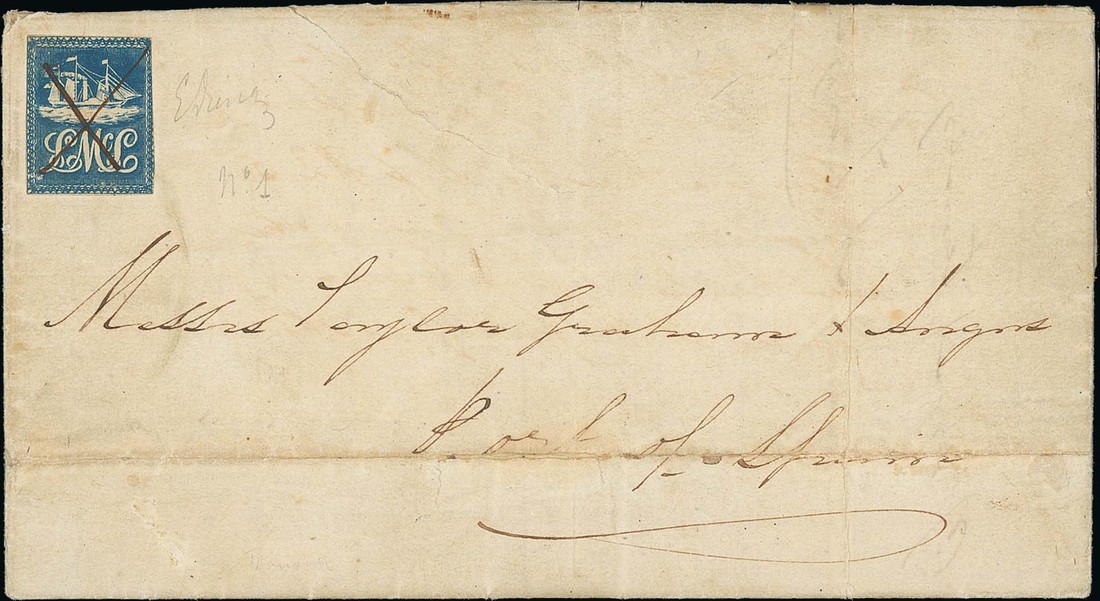 LMcL
No. 1
Messrs Taylor Graham & Angus
Port of Spain